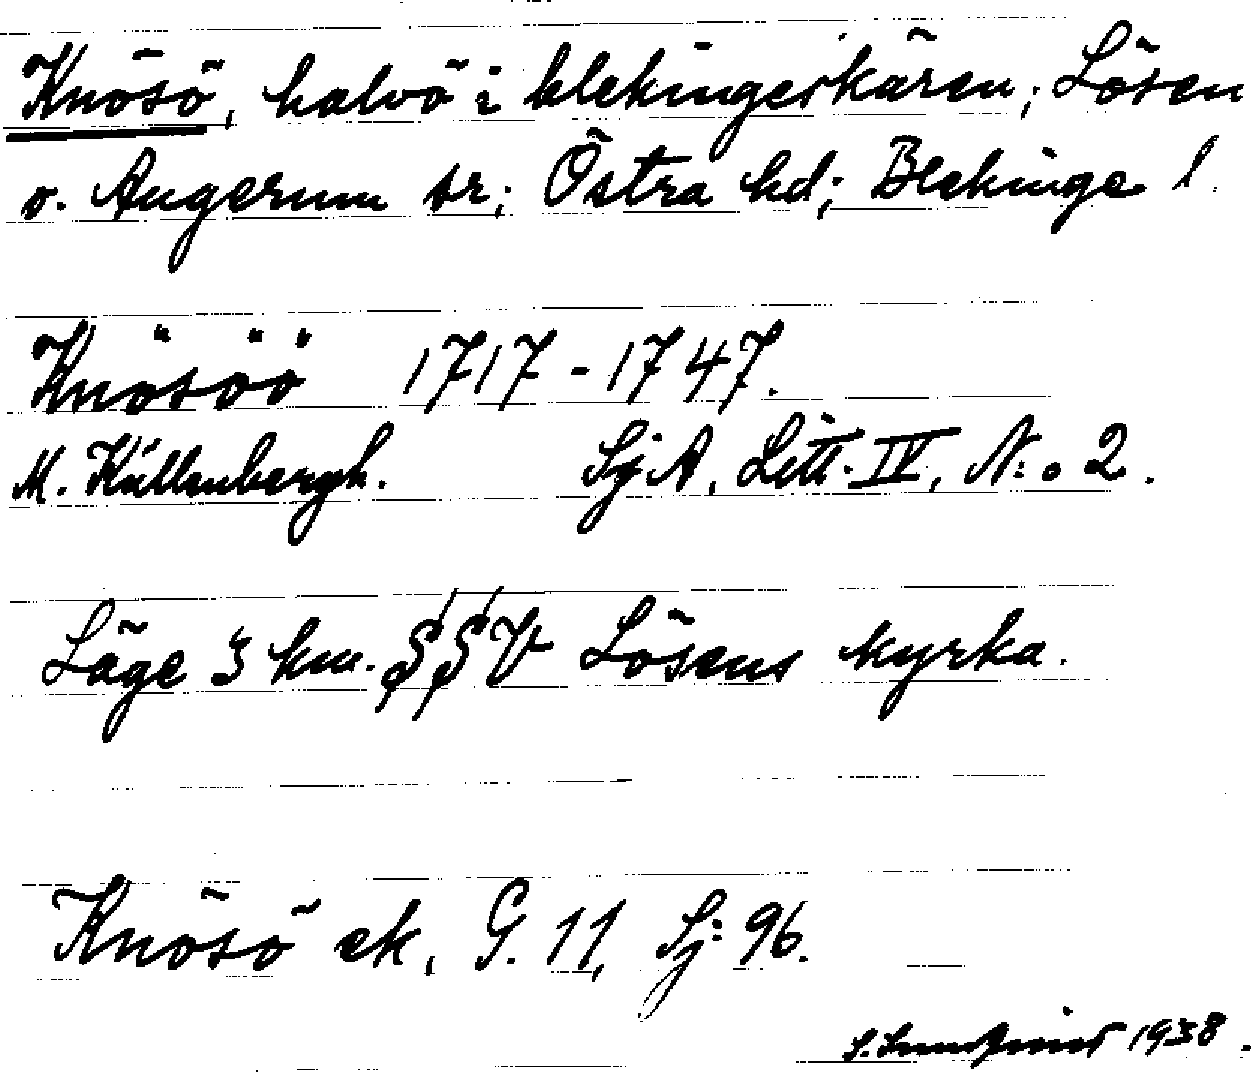 Knösö, halvö i blekingeskären; Lösen
o. Augerum sr; Östra hd; Blekinge l.
Knösöö 1717-1747.
M. Källenbergh. Sj A, Litt. IV, N:o 2.
Läge 3 km. SSV Lösens kyrka.
Knösö ek, G. 11, Sj: 96.
S. 1938.